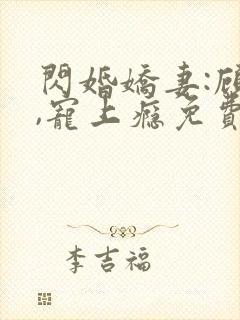 閃婚嬌妻:
,寵上癮免費
李吉福